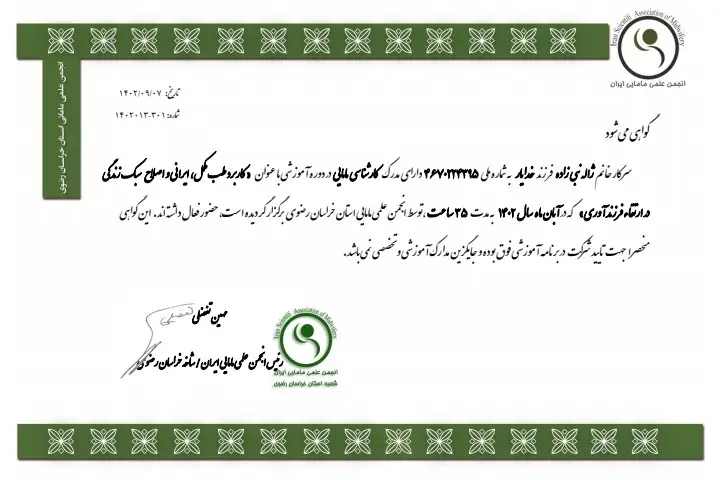 Iran Scientific Association of Midwifery
انجمن علمی مامایی ایران
انجمن علمی مامایی استان خراسان رضوی
تاریخ: ۱۴۰۲/۰۹/۰۷
شماره: ۳۰۱-۱۴۰۲۰۱۳
گواهی می شود
سرکار خانم ژاله نبی زاده فرزند خدایار به شماره ملی ۴۶۷۰۲۳۴۳۹۵ دارای مدرک کارشناسی مامایی در دوره آموزشی با عنوان «کاربرد طب مکمل، ایرانی و اصلاح سبک زندگی
در ارتقاء فرزندآوری» که در آبان ماه سال ۱۴۰۲ به مدت ۳۵ ساعت، توسط انجمن علمی مامایی استان خراسان رضوی برگزار گردیده است، حضور فعال داشته اند. این گواهی
منحصرا جهت تایید شرکت در برنامه آموزشی فوق بوده و جایگزین مدارک آموزشی و تخصصی نمی باشد.
مهین تفضلی
رئیس انجمن علمی مامایی ایران / شاخه خراسان رضوی
Iran Scientific Association of Midwifery
انجمن علمی مامایی ایران
شعبه استان خراسان رضوی